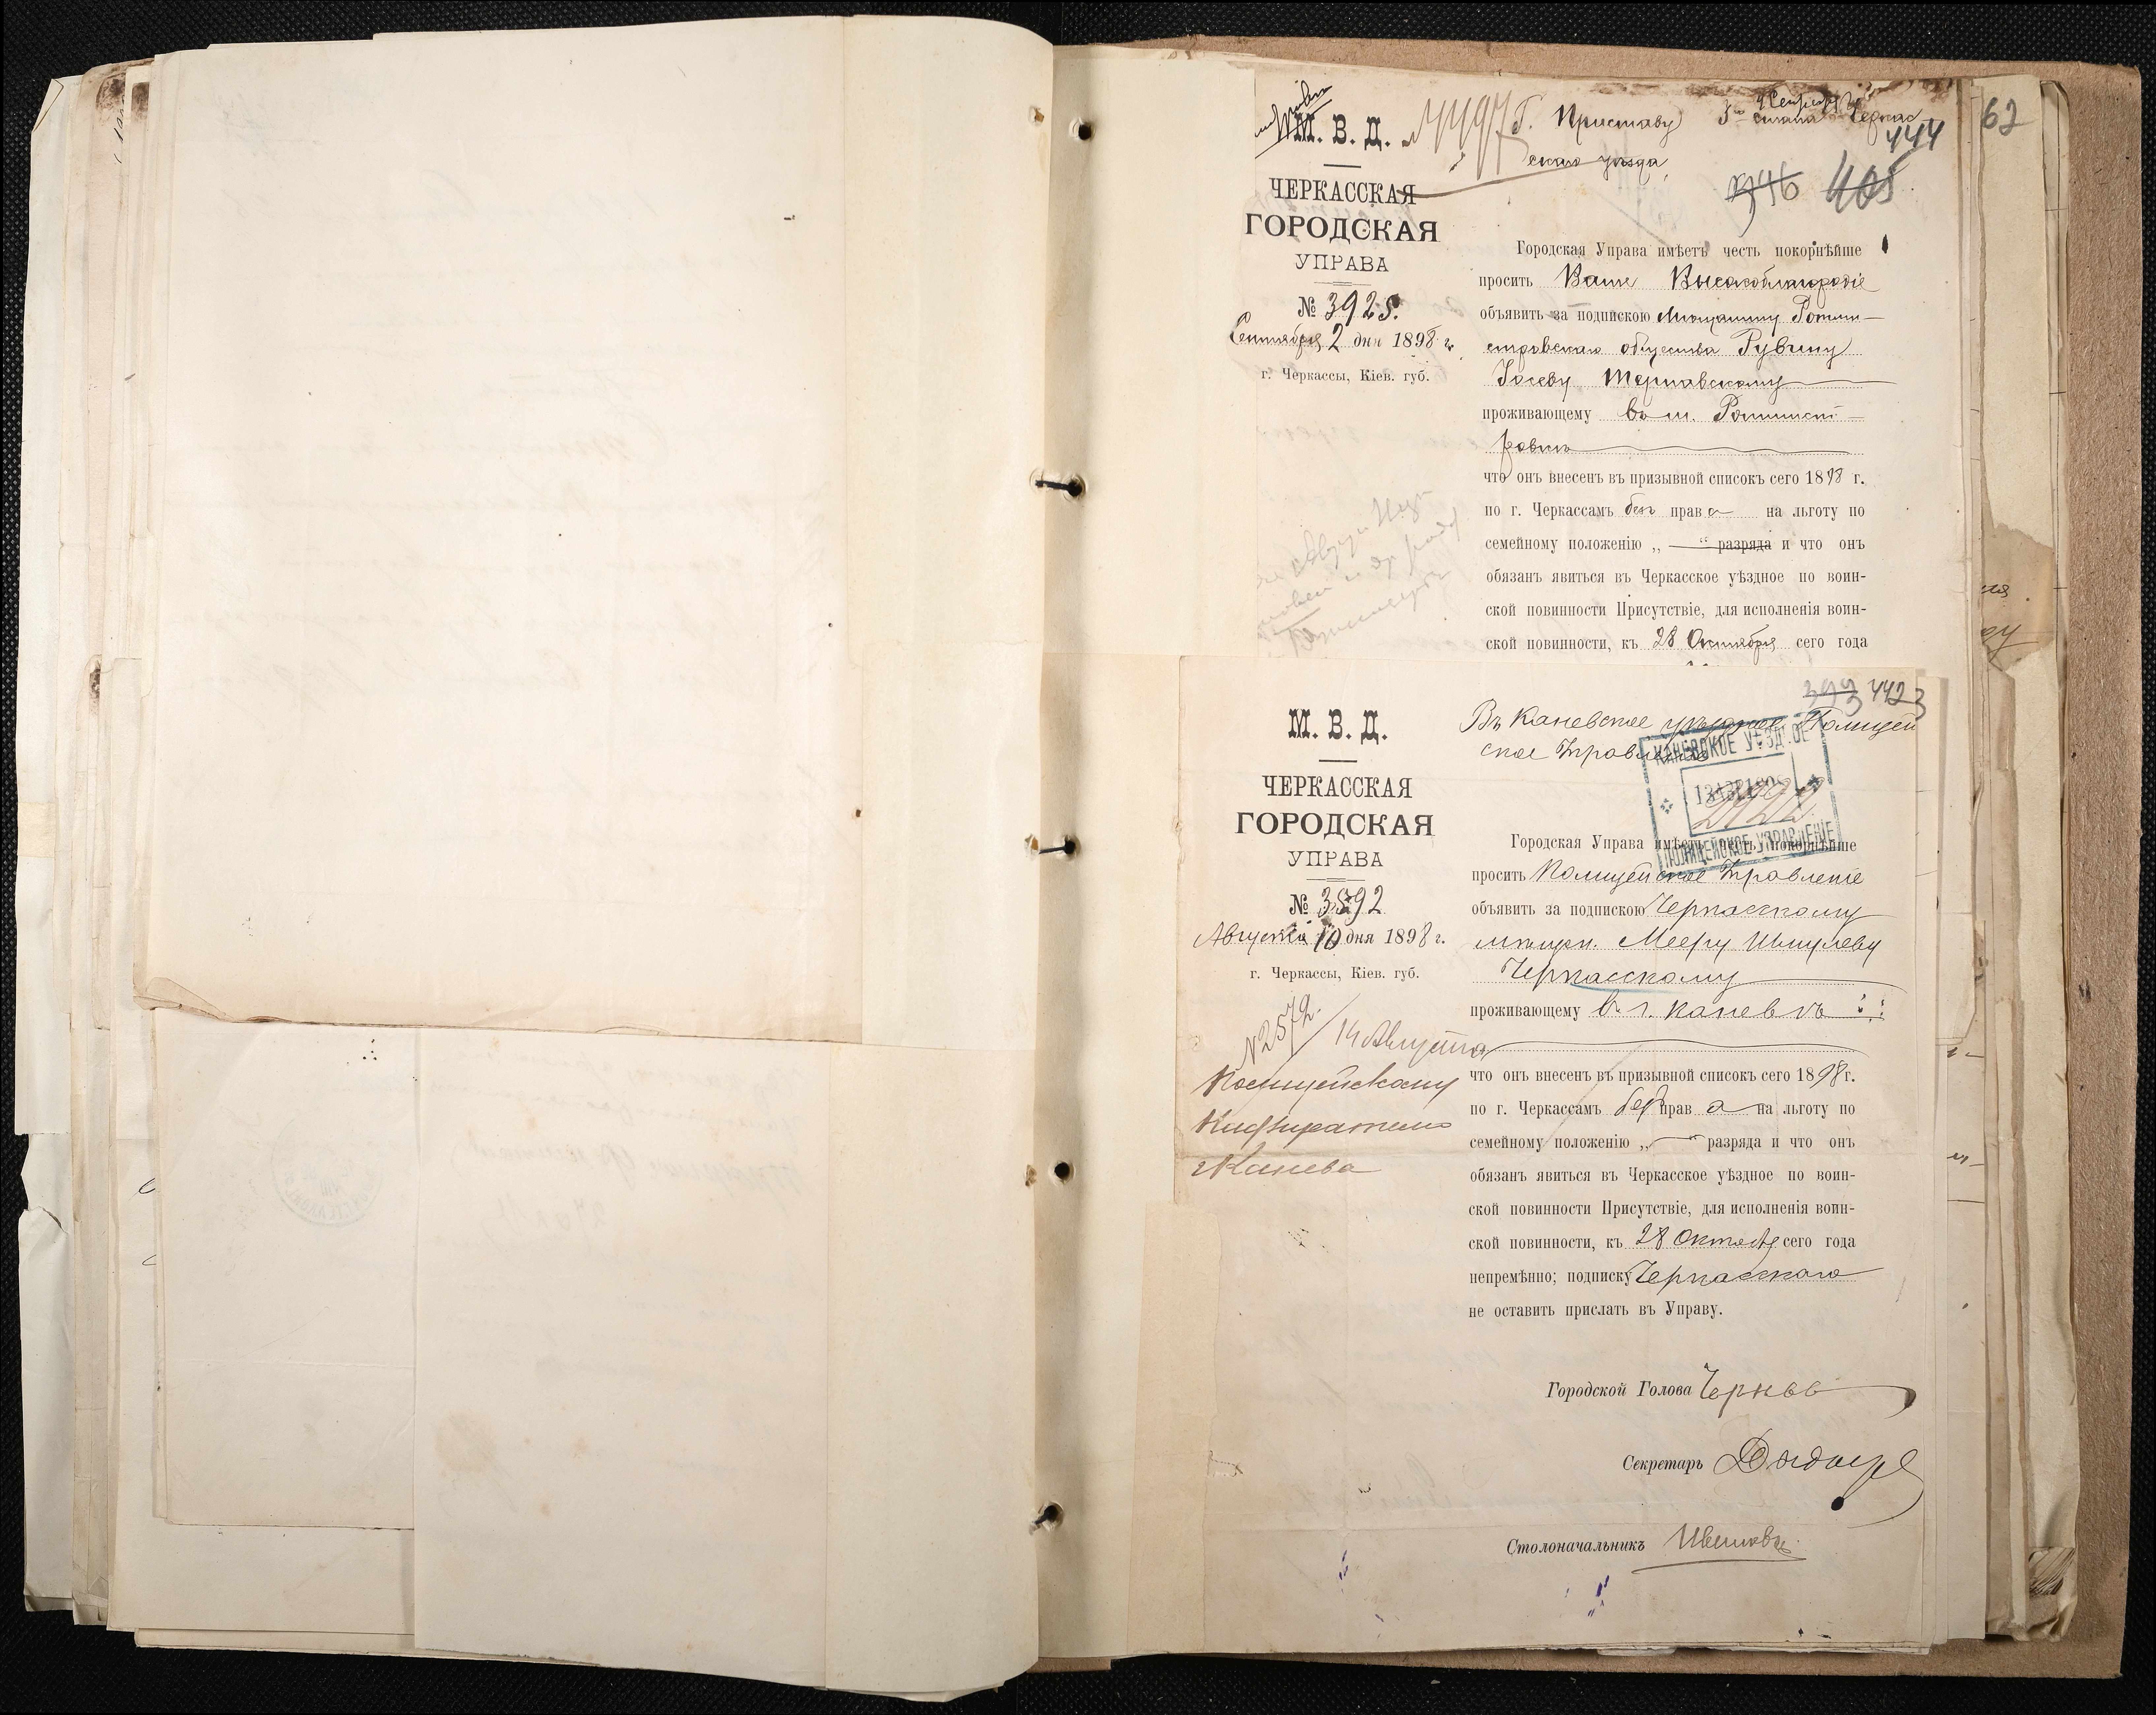 М. В. Д.
ЧЕРКАССКАЯ
ГОРОДСКАЯ
УПРАВА
№ 3925.
Сентября 2 дня 1898 г.
г. Черкассы, Кіев. губ.
Г. Приставу 5го стана Черкас
скаго уѣзда
444
405
62
Городская Управа имѣетъ честь покорнѣйше
просить Ваше Высокоблагородіе
объявить за подпискою Мѣщанину Ротми-
стровскаго общества Рувину
Іосеву Тернавскому
проживающему въ м. Ротмист-
ровкѣ
что онъ внесенъ въ призывной списокъ сего 1898 г.
по г. Черкассамъ безъ права на льготу по
семейному положенію „ — “ разряда и что онъ
обязанъ явиться въ Черкасское уѣздное по воин-
ской повинности Присутствіе, для исполненія воин-
ской повинности, къ 28 Октября сего года
М. В. Д.
ЧЕРКАССКАЯ
ГОРОДСКАЯ
УПРАВА
№ 3592
Августа 10 дня 1898 г.
г. Черкассы, Кіев. губ.
N 2572.
14 Августа
Полицейскому
Надзирателю
г Канева
442
Въ Каневское уѣздное Полицей
ское Управленіе
КАНЕВСКОЕ УѢЗДНОЕ
ПОЛИЦЕЙСКОЕ УПРАВЛЕНІЕ
Городская Управа имѣетъ честь покорнѣйше
просить Полицейское Управленіе
объявить за подпискою Черкасскому
мѣщан. Мееру Шмулеву
Черкасскому
проживающему въ г. Каневѣ
что онъ внесенъ въ призывной списокъ сего 1898 г.
по г. Черкассамъ безъ права на льготу по
семейному положенію „ — “ разряда и что онъ
обязанъ явиться въ Черкасское уѣздное по воин-
ской повинности Присутствіе, для исполненія воин-
ской повинности, къ 28 Октября сего года
непремѣнно; подписку Черкасскаго
не оставить прислать въ Управу.
Городской Голова
Секретарь
Столоначальникъ